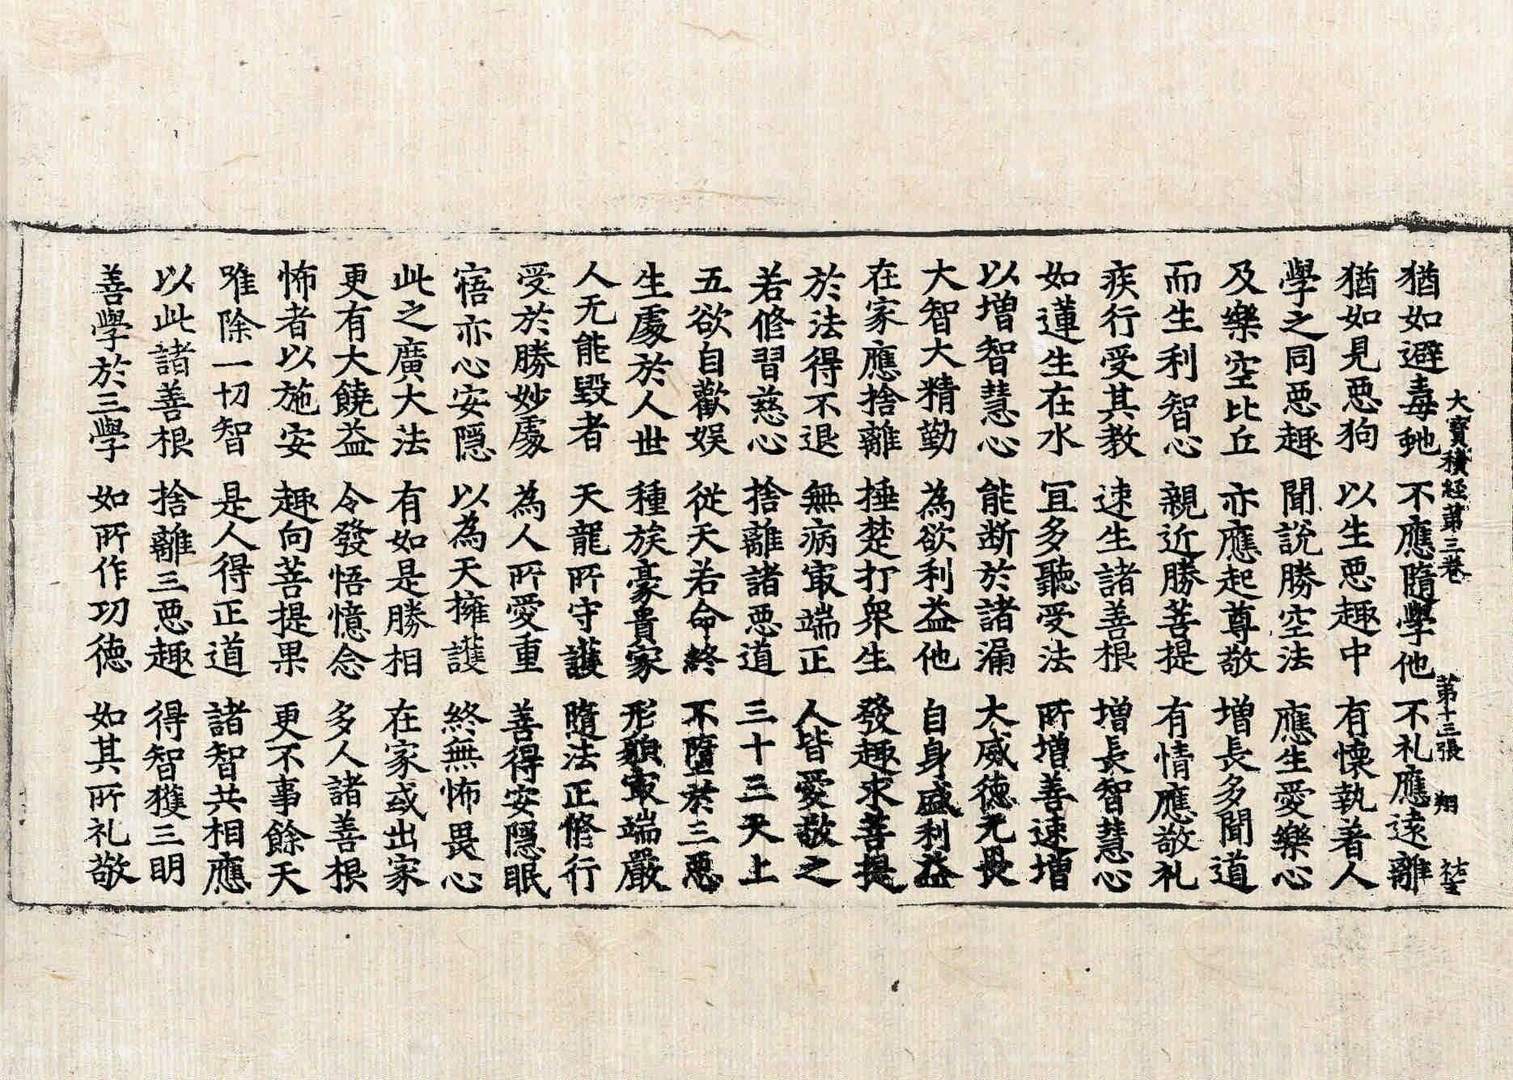 大寳積經第三卷 第十三張 翔
猶如避毒虵 不應隨學他 不礼應遠離
猶如見惡狗 以生惡趣中 有懷執著人
學之同惡趣 聞說勝空法 應生愛樂心
及樂空比丘 亦應起尊敬 增長多聞道
而生利智心 親近勝菩提 有情應敬礼
疾行受其教 速生諸善根 增長智慧心
如蓮生在水 冝多聽受法 所增善速增
以增智慧心 能断於諸漏 大威德无畏
大智大精勤 為欲利益他 自身盛利益
在家應捨離 捶楚打衆生 發趣求菩提
於法得不退 無病㝡端正 人皆愛敬之
若修習慈心 捨離諸惡道 三十三天上
五欲自歡娱 從天若命終 不墮於三惡
生處於人世 種族豪貴家 形貌㝡端嚴
人无能毀者 天龍所守護 隨法正修行
受於勝妙處 為人所愛重 善得安隱眠
寤亦心安隱 以為天擁護 終無怖畏心
此之廣大法 有如是勝相 在家或出家
更有大饒益 令發悟憶念 多人諸善根
怖者以施安 趣向菩提果 更不事餘天
唯除一切智 是人得正道 諸智共相應
以此諸善根 捨離三惡趣 得智獲三明
善學於三學 如所作功德 如其所礼敬